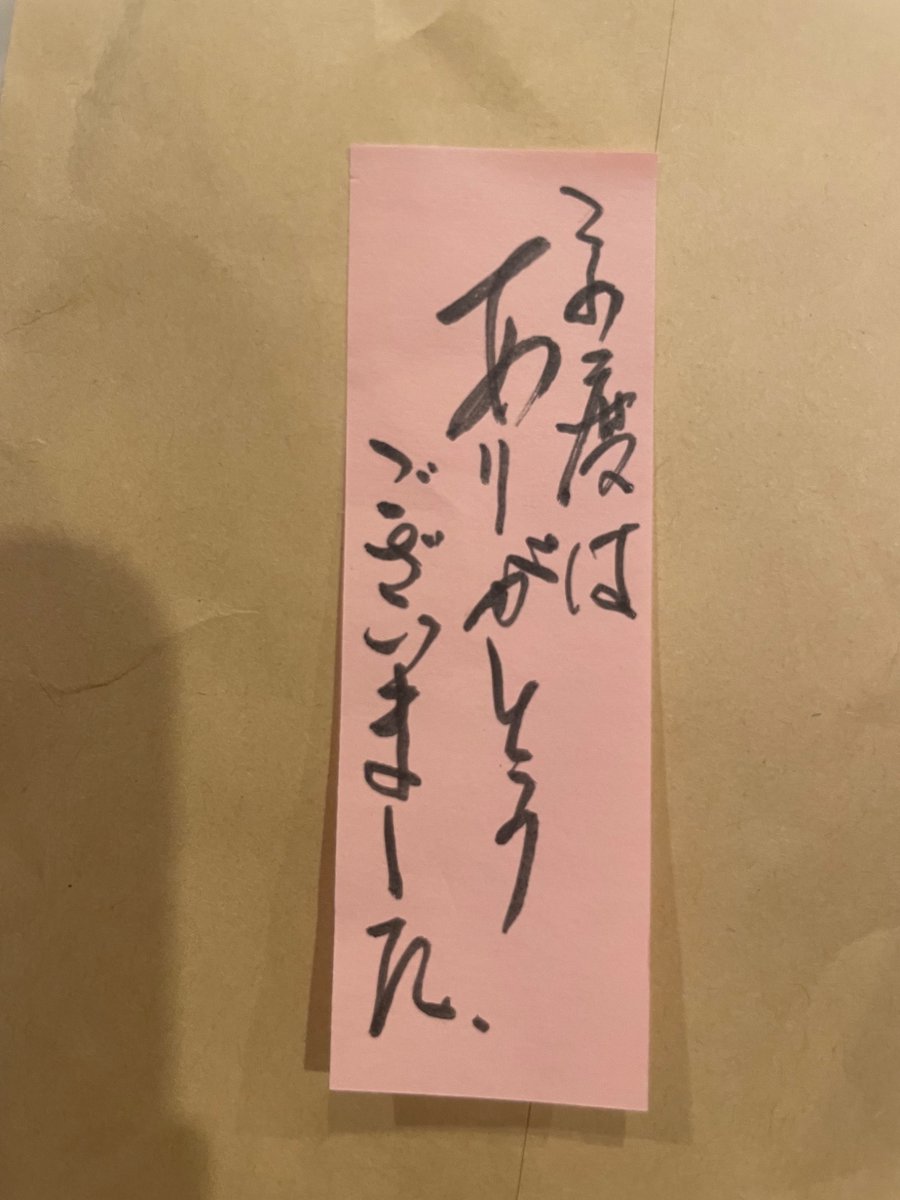 この度は
ありがとう
ございました.